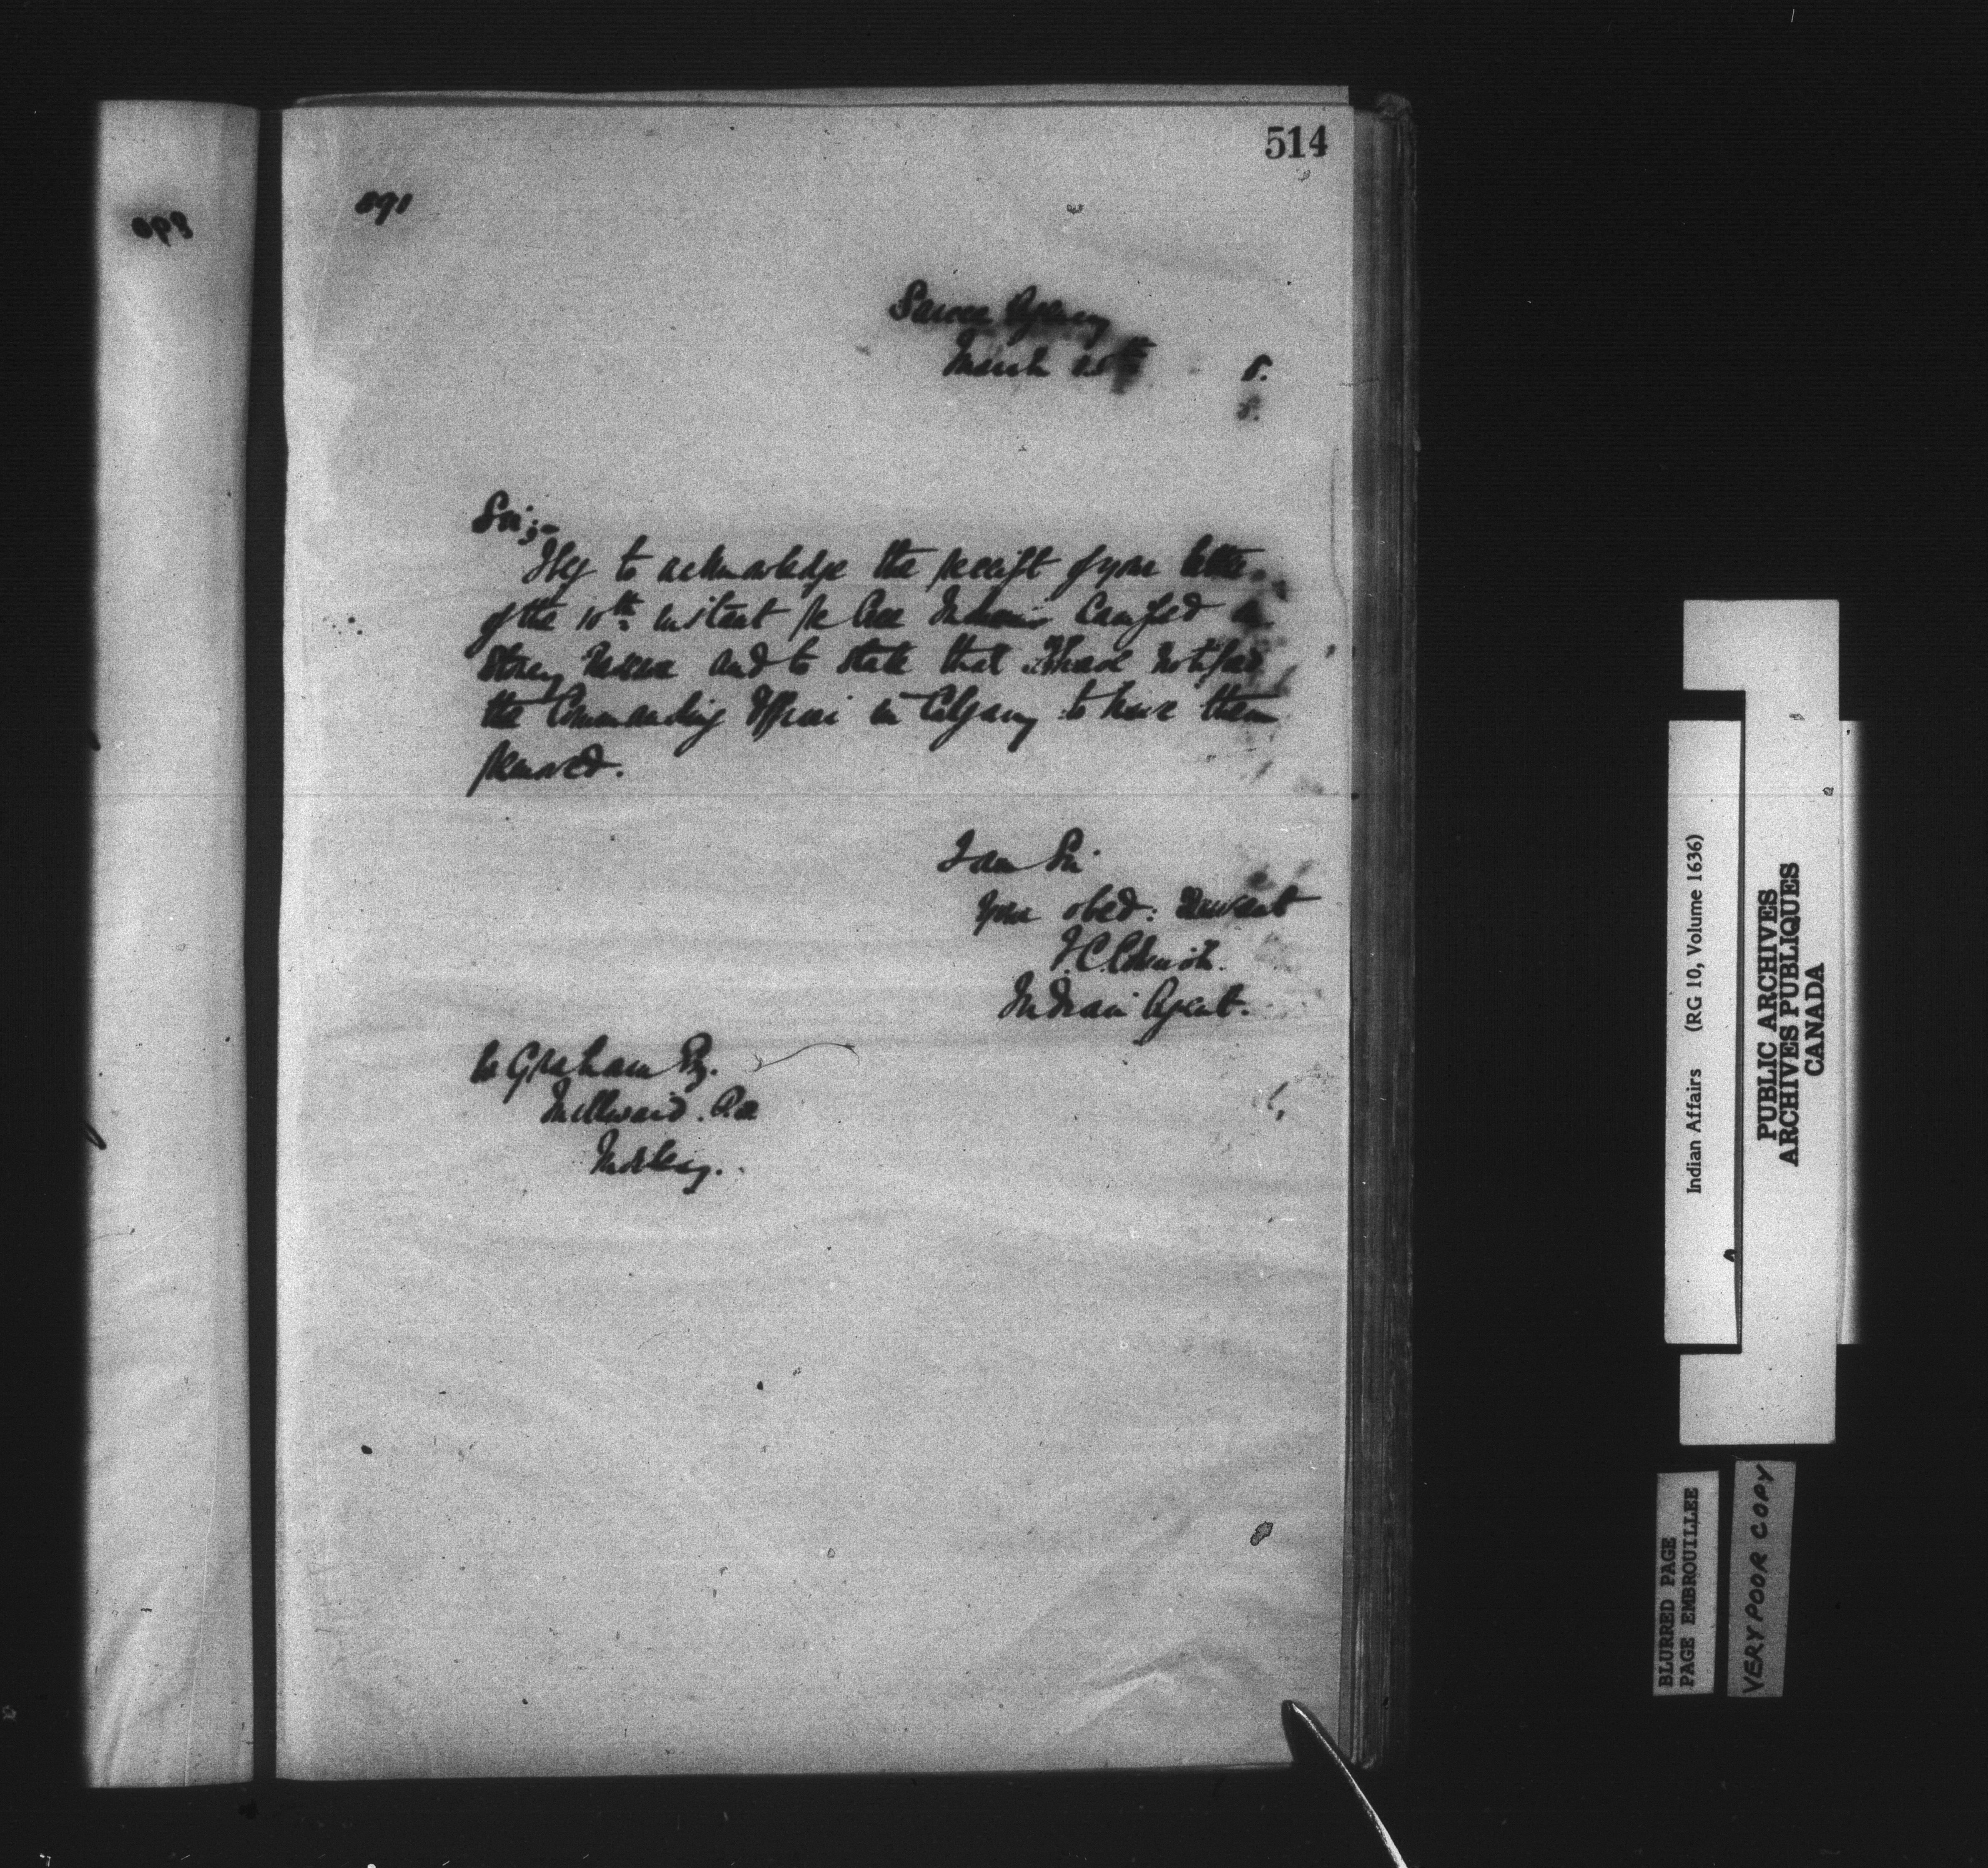 514
891
Sarcee Agency
March
8.
8.
Sir;-
I beg to acknowledge the receipt of your letter
of the 10th instant re Cree Indians Camped on
Stoney Reserve and to state that I have notified
the Commanding Officer in Calgary to have them
removed.
I am Sir
Your obed: Servant
Indian Agent.
Graham Esq.
Morley.
Indian Affairs (RG 10, Volume 1636)
PUBLIC ARCHIVES
ARCHIVES PUBLIQUES
CANADA
BLURRED PAGE
PAGE EMBROUILLEE
VERY POOR COPY